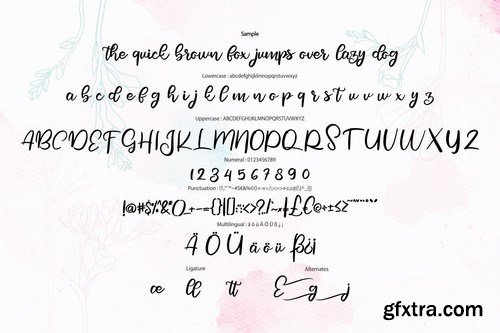 Sample
the quick brown fox jumps over lazy dog
Lowercase : abcdefghijklmnopqrstuvwxyz
a b c d e f g h i j k l m n o p q r s t u v w x y z
Uppercase : ABCDEFGHIJKLMNOPQRSTUVWXYZ
ABCDEFGHIJKLMNOPQRSTUVWXYZ
Numeral : 0123456789
1 2 3 4 5 6 7 8 9 0
Punctuation :
Multilingual : ä ö ü Ä Ö Ü ß ¿ ¡
Ä Ö Ü ä ö ü ß ¿ ¡
Ligature Alternates
œ ll tt E g j
gfxtra.com